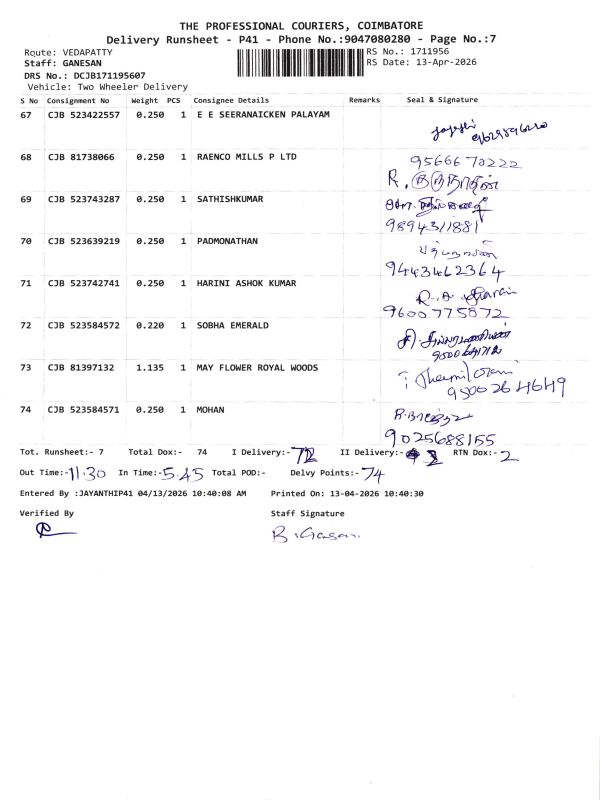 THE PROFESSIONAL COURIERS, COIMBATORE
Delivery Runsheet - P41 - Phone No.:9047080280 - Page No.:7
Route: VEDAPATTY RS No.: 1711956
Staff: GANESAN RS Date: 13-Apr-2026
DRS No.: DCJB171195607
Vehicle: Two Wheeler Delivery
S No Consignment No Weight PCS Consignee Details Remarks Seal & Signature
67 CJB 523422557 0.250 1 E E SEERANAICKEN PALAYAM
68 CJB 81738066 0.250 1 RAENCO MILLS P LTD 9566670222
R.
69 CJB 523743287 0.250 1 SATHISHKUMAR
9894311881
70 CJB 523639219 0.250 1 PADMONATHAN
9443462364
71 CJB 523742741 0.250 1 HARINI ASHOK KUMAR
9600775872
72 CJB 523584572 0.220 1 SOBHA EMERALD
73 CJB 81397132 1.135 1 MAY FLOWER ROYAL WOODS
9500264649
74 CJB 523584571 0.250 1 MOHAN
9025688155
Tot. Runsheet:- 7 Total Dox:- 74 I Delivery:- 72 II Delivery:- RTN Dox:- 2
Out Time:- 11.30 In Time:- 5.45 Total POD:- Delvy Points:- 74
Entered By :JAYANTHIP41 04/13/2026 10:40:08 AM Printed On: 13-04-2026 10:40:30
Verified By Staff Signature